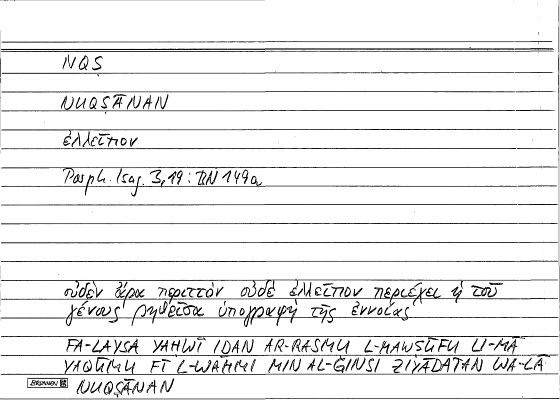 NQṢ
NUQṢĀNAN
ἐλλεῖπον
Porph. Isag. 3,19 : 149a
οὐδὲν ἄρα περιττὸν οὐδὲ ἐλλεῖπον περιέχει ἡ τοῦ
γένους ῥηθεῖσα ὑπογραφὴ τῆς ἐννοίας
FA-LAYSA YAḤWĪ IḎAN AR-RASMU L-MAWṢŪFU LI-MĀ
YAQŪMU FĪ L-WAHMI MIN AL-ǦINSI ZIYĀDATAN WA-LĀ
BRUNNEN NUQṢĀNAN